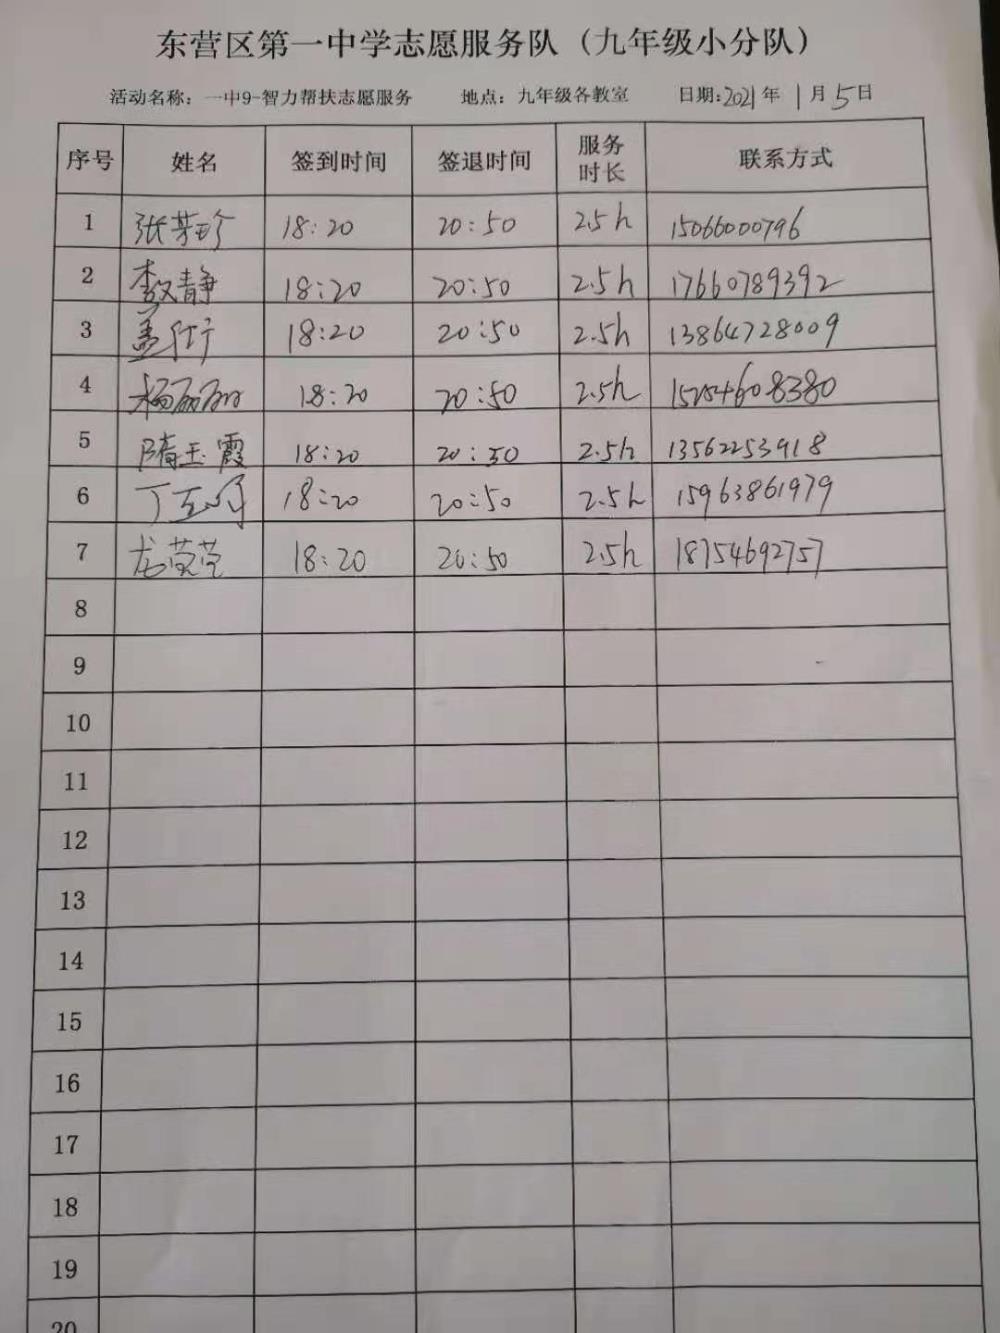 东营区第一中学志愿服务队（九年级小分队）
活动名称：一中9-智力帮扶志愿服务 地点：九年级各教室 日期:2021年 1月5日
序号 姓名 签到时间 签退时间 服务时长 联系方式
1 张芳珍 18:20 20:50 2.5h 15066000796
2 李文静 18:20 20:50 2.5h 17660789392
3 孟 18:20 20:50 2.5h 13864728009
4 杨丽丽 18:20 20:50 2.5h 15254608380
5 隋玉霞 18:20 20:50 2.5h 13562253918
6 丁 18:20 20:50 2.5h 15963861979
7 龙莹莹 18:20 20:50 2.5h 18754692757
8
9
10
11
12
13
14
15
16
17
18
19
20